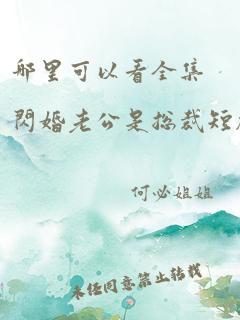 那里可以看全集
閃婚老公是总裁短
何必姐姐
未经同意禁止转载